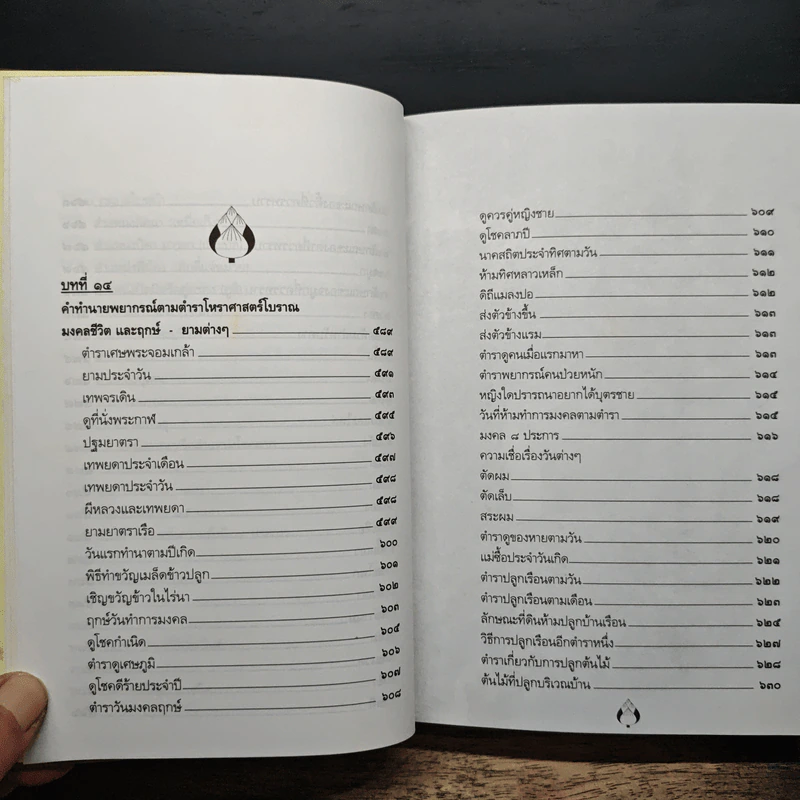 บทที่ ๑๔
คำทำนายพยากรณ์ตามตำราโหราศาสตร์โบราณ
มงคลชีวิต และฤกษ์ - ยามต่างๆ ๕๘๙
ตำราเศษพระจอมเกล้า ๕๘๙
ยามประจำวัน ๕๙๑
เทพจรเดิน ๕๙๓
ดูที่นั่งพระกาฬ ๕๙๔
ปฐมยาตรา ๕๙๖
เทพยดาประจำเดือน ๕๙๗
เทพยดาประจำวัน ๕๙๘
ผีหลวงและเทพยดา ๕๙๘
ยามยาตราเรือ ๕๙๙
วันแรกทำนาตามปีเกิด ๖๐๐
พิธีทำขวัญเมล็ดข้าวปลูก ๖๐๑
เชิญขวัญข้าวในไร่นา ๖๐๒
ฤกษ์วันทำการมงคล ๖๐๓
ดูโชคกำเนิด ๖๐๔
ตำราดูเศษภูมิ ๖๐๖
ดูโชคดีร้ายประจำปี ๖๐๗
ตำราวันมงคลฤกษ์ ๖๐๘
ดูควรคู่หญิงชาย ๖๐๙
ดูโชคลาภปี ๖๑๐
นาคสถิตประจำทิศตามวัน ๖๑๑
ห้ามทิศหลาวเหล็ก ๖๑๒
ดิถีแมลงปอ ๖๑๒
ส่งตัวข้างขึ้น ๖๑๓
ส่งตัวข้างแรม ๖๑๓
ตำราดูคนเมื่อแรกมาหา ๖๑๓
ตำราพยากรณ์คนป่วยหนัก ๖๑๔
หญิงใดปรารถนาอยากได้บุตรชาย ๖๑๕
วันที่ห้ามทำการมงคลตามตำรา ๖๑๕
มงคล ๘ ประการ ๖๑๖
ความเชื่อเรื่องวันต่างๆ
ตัดผม ๖๑๘
ตัดเล็บ ๖๑๘
สระผม ๖๑๙
ตำราดูของหายตามวัน ๖๒๐
แม่ซื้อประจำวันเกิด ๖๒๑
ตำราปลูกเรือนตามวัน ๖๒๒
ตำราปลูกเรือนตามเดือน ๖๒๓
ลักษณะที่ดินห้ามปลูกบ้านเรือน ๖๒๕
วิธีการปลูกเรือนอีกตำราหนึ่ง ๖๒๗
ตำราเกี่ยวกับการปลูกต้นไม้ ๖๒๘
ต้นไม้ที่ปลูกบริเวณบ้าน ๖๓๐